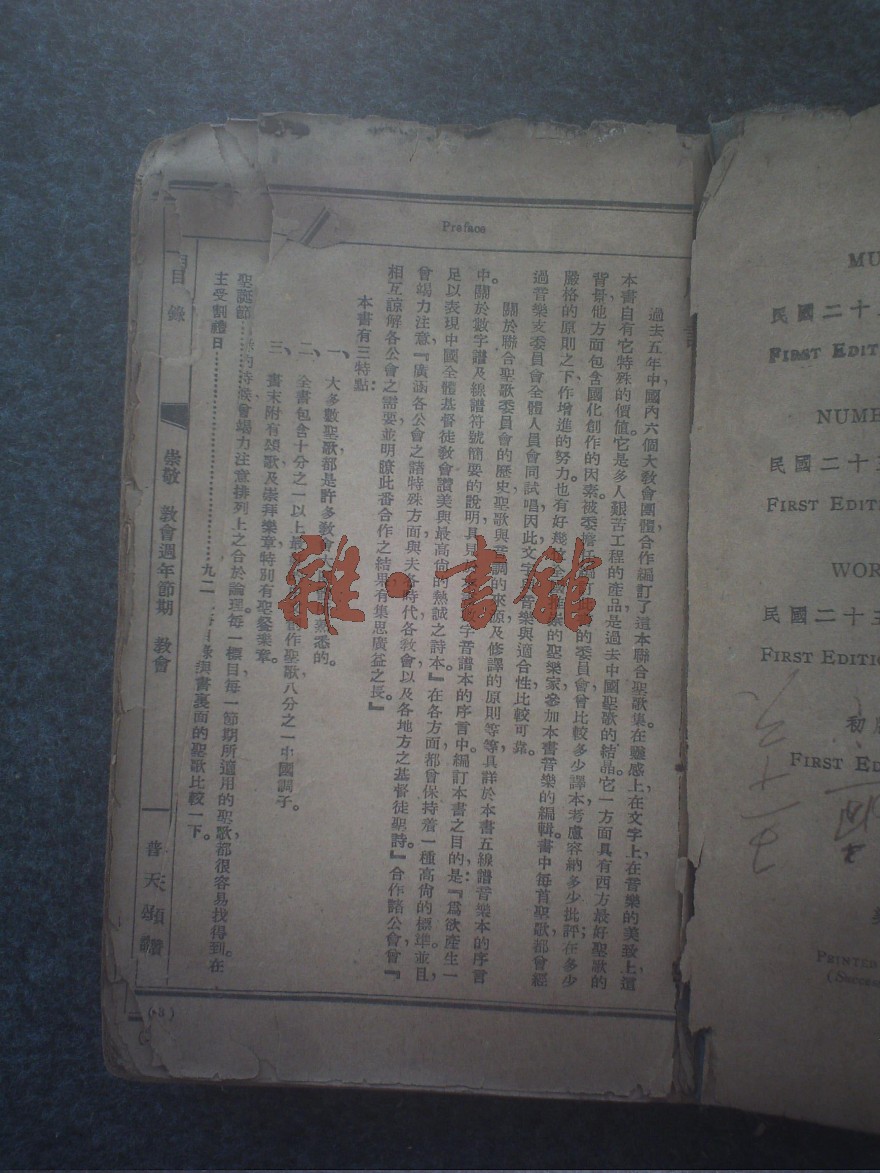 Preface
過去五年,中國內六個大教會團體,合作編訂了這本聯合聖歌集,在靈感上,在文字上,在音樂的美致上,這
本書自有它特殊的價值。它是多人艱苦工程的產品,是過去中國聖歌的結晶。它一方面具有西方最好聖歌的
背景,他方面包含國化創作的因素。被委
的委員會,曾比較多少譯本,考慮容納多少批評;在多少
嚴格的原則之下,作增進的努力。也有好幾
的聖樂家,參加本書音樂的編輯。書中每首聖歌,都曾經
過音樂支委員會全體人員會同試唱,因此文字與音樂與適合性比較可靠。
關於聯合聖歌委員會的歷史,聖歌與音調的來源,及修譯的原則等等,具詳於本書五線譜音樂本的序言
中。關於數字譜及線譜符號簡要的說明,具見
字音譜本的序言中。編訂本書之目的是:『為欲產生一
足以表現中國全體基督徒教會讚美與最高尚的熱誠之詩本。』在各方面都曾保持着一種高尚的標準,並且,
曾竭力注意,『廣涵各公會之諸特殊方面,與夫各時代各教會以及各地方之基督徒聖詩。』合作諸公會曾『
相互諒解各公會之需要,並明瞭此番合作之結果,有集思廣益之長。』
本書有三特點:
一、大多數聖歌,都是許多教會
熟悉的。
二、全書包含十分之一以上
作聖歌,八分之一中國調子。
三、書末附有頌歌及崇拜樂章,特別有聖餐樂章。
的時候,曾竭力注意排列上之合於論理。每一標目,每一節期所適用的聖歌,都很容易找得到。在
目錄與書裏面的聖歌比較一下。
聖誕節
主受割禮日
九二
目錄
崇敬 教會週年節期 教會
普天頌讚
(3)
MU
民國二十
FIRST EDIT
NUMBE
民國二十
FIRST EDIT
WOR
民國二十
FIRST EDITIO
初
FIRST ED
PRINTED
(Success
雜·書館